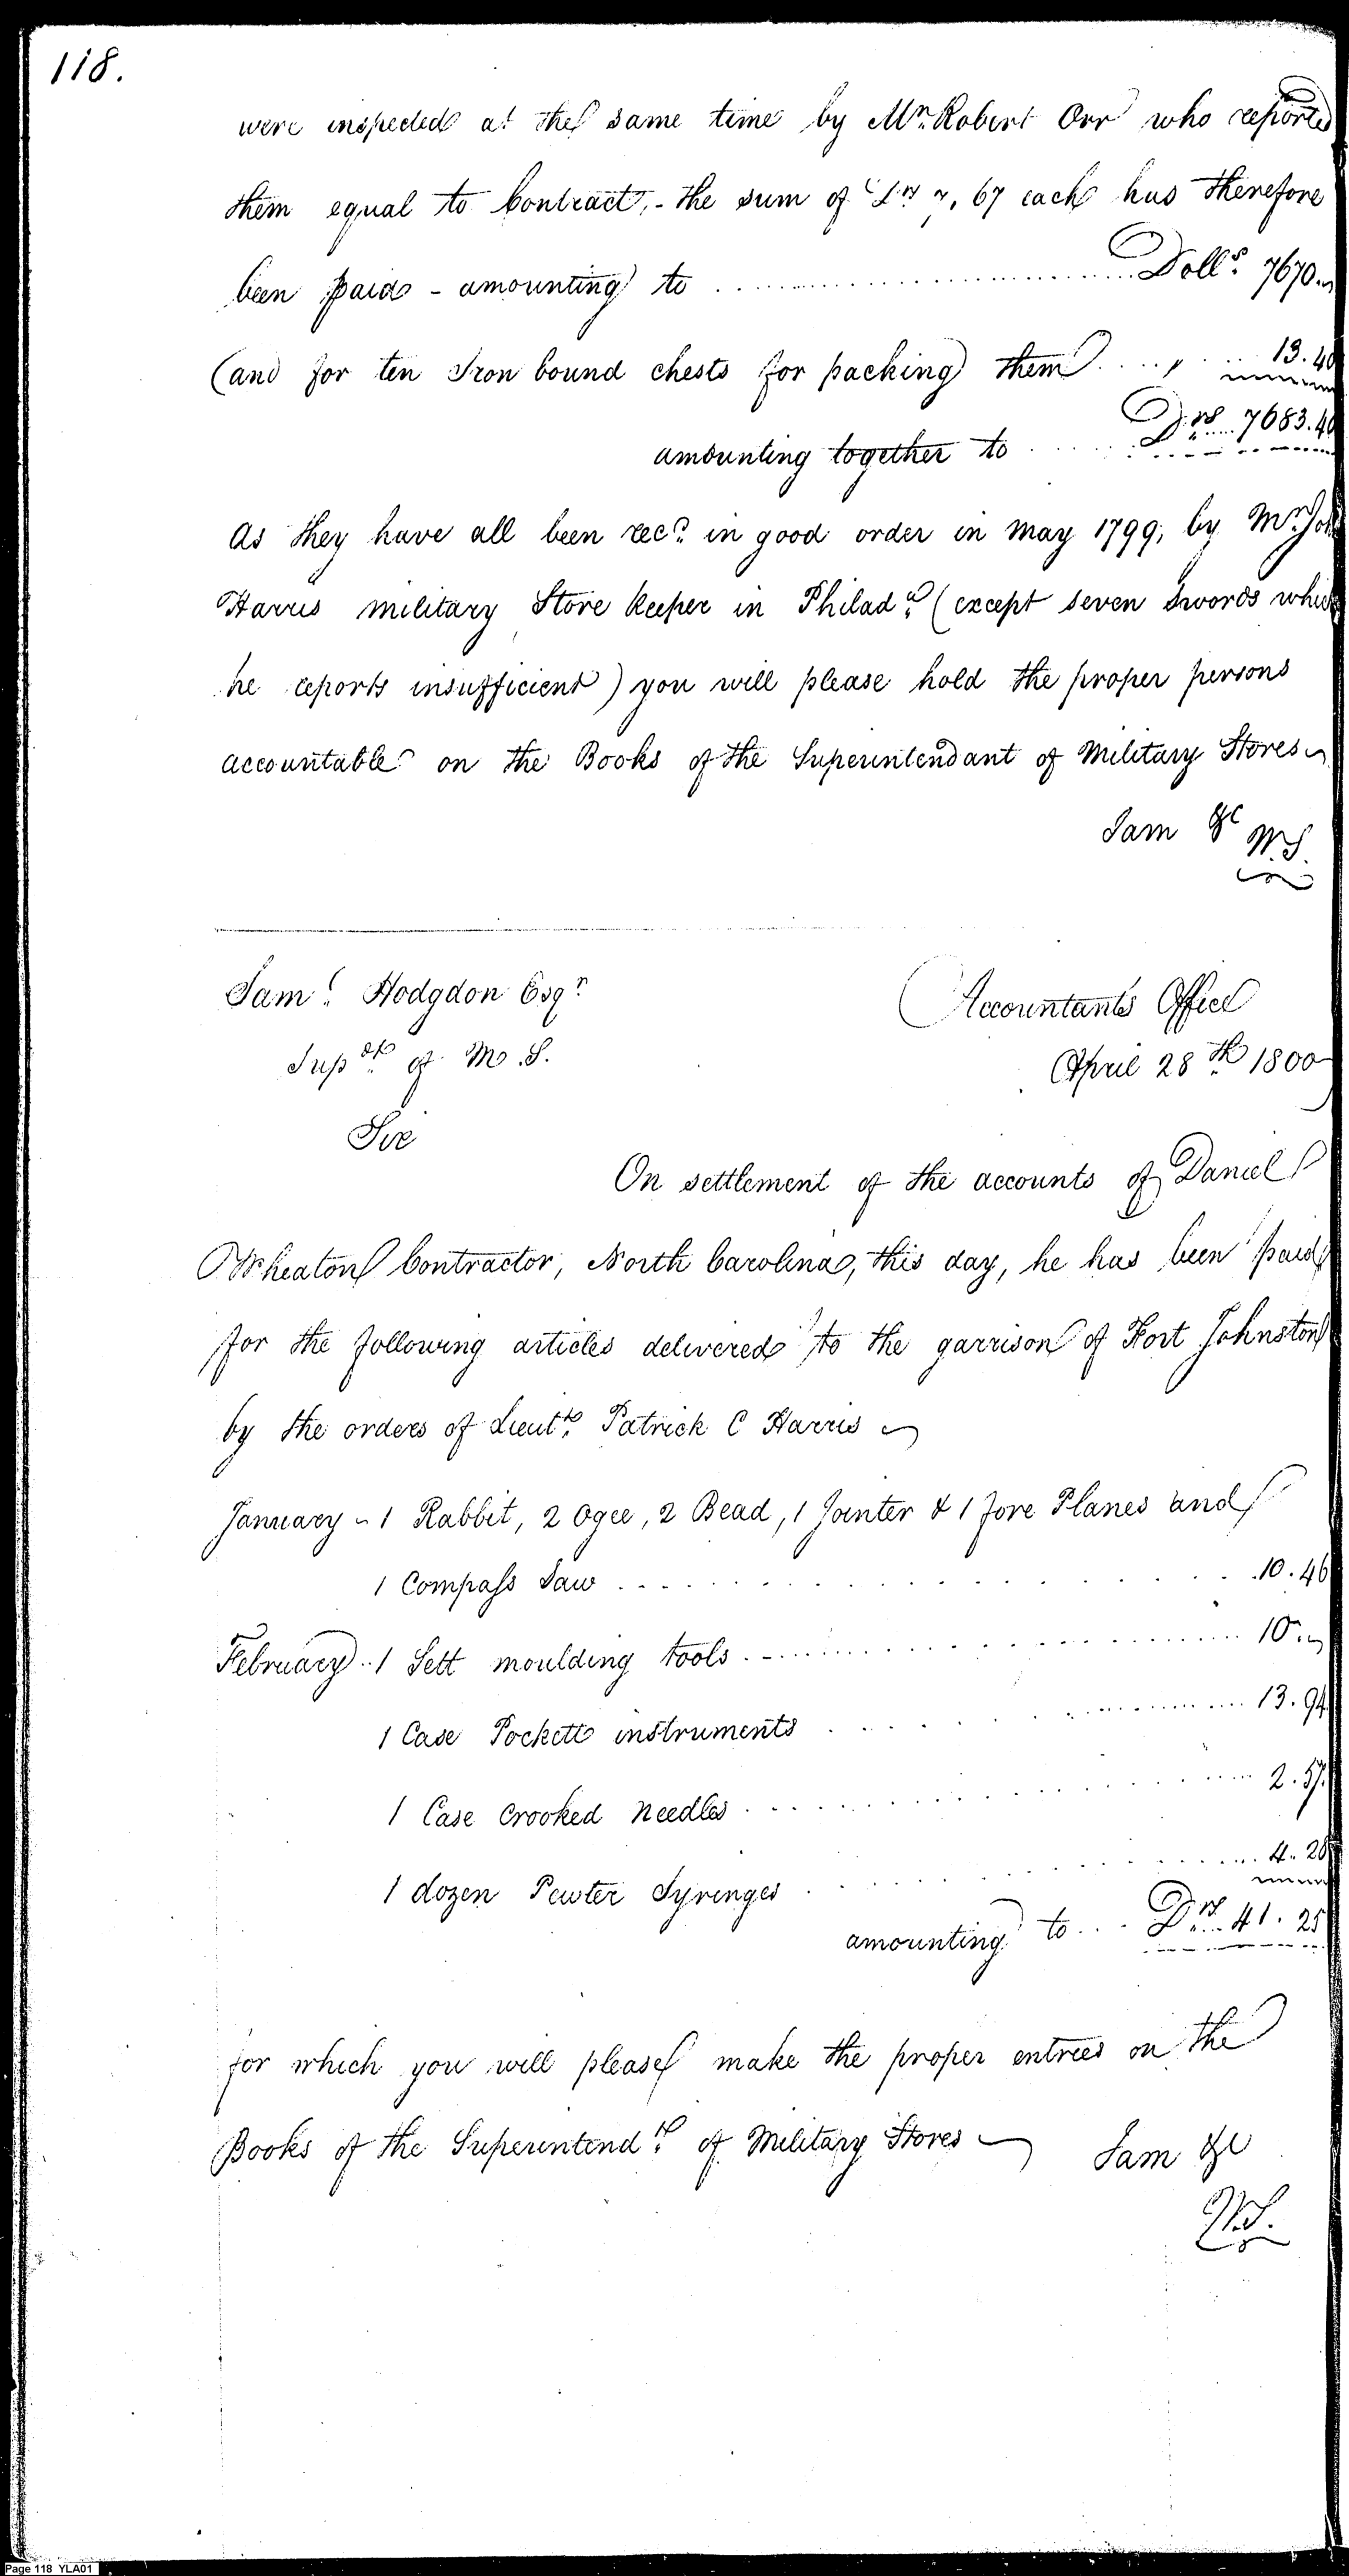 118.
were inspected at the same time by Mr. Robert Orr who reported
them equal to Contract, - the sum of Drs 7, 67 each has therefore
been paid - amounting to ........ Dolls. 7670.
(and for ten Iron bound chests for packing them .... " .... 13.40
amounting together to .... Drs. 7683.40
As they have all been recd. in good order in May 1799, by Mr. John
Harris Military Store Keeper in Philada. (except seven swords which
he reports insufficient) you will please hold the proper persons
accountable on the Books of the Superintendant of Military Stores
I am &c
W.S.
Saml. Hodgdon Esqr.
Accountants Office
Supdt. of M.S.
April 28th. 1800
Sir
On settlement of the accounts of Daniel
Wheaton Contractor, North Carolina, this day, he has been paid
for the following articles delivered to the garrison of Fort Johnston
by the orders of Lieutt. Patrick C Harris
January - 1 Rabbit, 2 Ogee, 2 Bead, 1 Jointer & 1 fore Planes and
1 Compass Saw ........ 10.46
February .. 1 Sett moulding tools ........ 10.
1 Case Pockett instruments ........ 13.94
1 Case Crooked Needles ........ 2.57.
1 dozen Pewter Syringes ........ 4.28
amounting to ... Drs. 41.25
for which you will please make the proper entries on the
Books of the Superintendt. of Military Stores - I am &c
W.S.
Page 118 YLA01